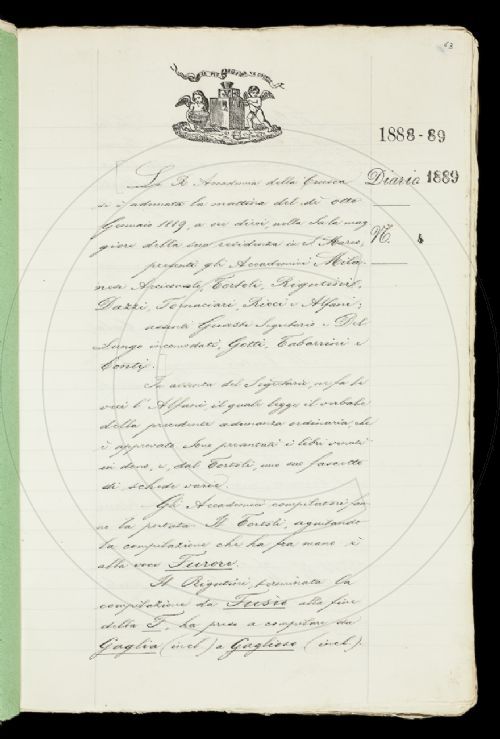 63
1888-89
Diario 1889
N. 4
La R. Accademia della Crusca
si è adunata la mattina del dì otto
Gennaio 1889, a ore dieci, nella Sala mag
giore della sua residenza in S. Marco,
presenti gli Accademici Mila-
nesi Arciconsolo, Tortoli, Rigutini,
Dazzi, Tornaciari, Ricci e Alfani;
assenti Guasti Segretario e Del
Lungo incomodati, Gotti, Tabarrini e
Conti.
In assenza del Segretario, ne fa le
veci l'Alfani, il quale legge il verbale
della precedente adunanza ordinaria, che
è approvato. Sono presentati i libri venuti
in dono, e, dal Tortoli, uno suo fascetto
di schede varie.
Gli Accademici compilatori fan-
no la portata. Il Tortoli, seguitando
la compilazione che ha fra mano è
alla voce Furore.
Il Rigutini, terminata la
compilazione da Fusio alla fine
della F, ha preso a compilare da
Gaglia (incl.) a Gaglioso (incl.).